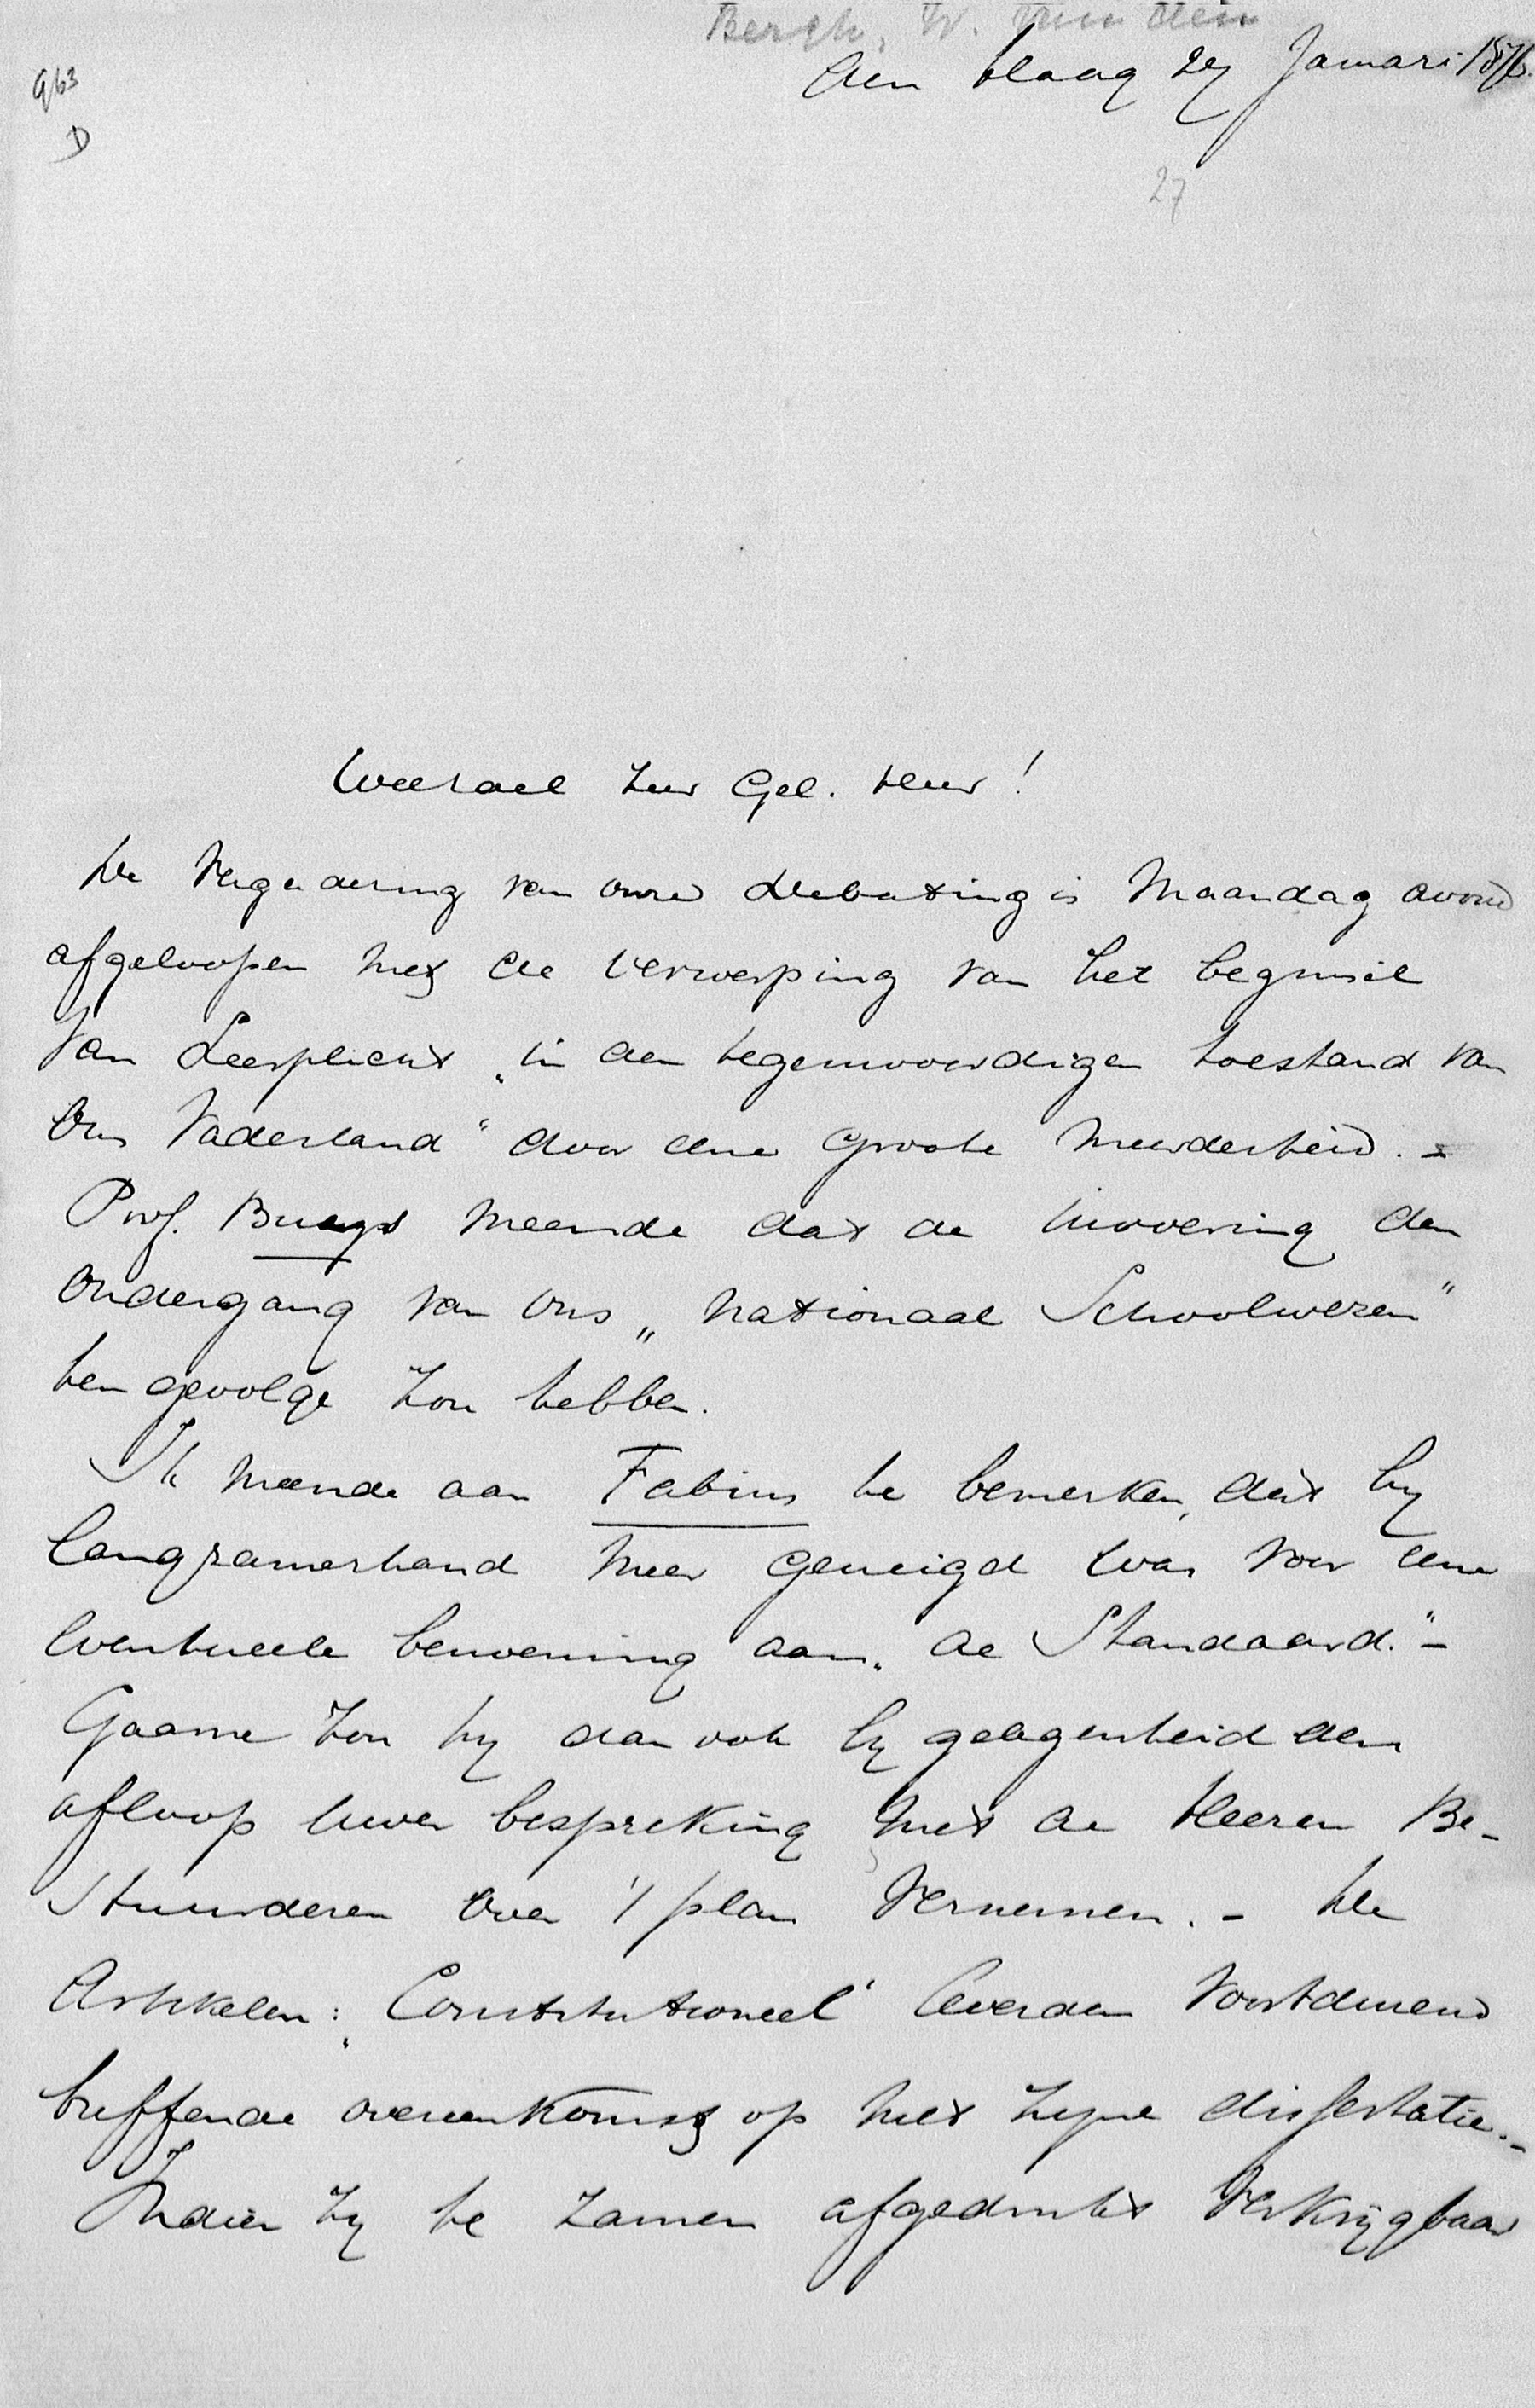 Bergh, W. van den
963
D
den Haag 27 Januari 1876.
27
Weledel Zeer Gel. Heer!
De Vergadering van onze debating is Maandag avond
afgeloopen met de verwerping van het beginsel
van Leerplicht „in den tegenwoordigen toestand van
Ons Vaderland" door eene Groote Meerderheid. –
Prof. Buys meende dat de invoering den
Ondergang van Ons „Nationaal Schoolwezen"
ten gevolge zou hebben.
Ik meende aan Fabius te bemerken, dat hy
langzamerhand meer geneigd was voor eene
eventueele benoeming aan „de Standaard." –
Gaarne zou hy dan ook by gelegenheid den
afloop uwer bespreking met de Heeren Be-
stuurderen over 't plan vernemen. – De
Artikelen: „Constitutioneel" leverden voortdurend
treffende overeenkomst op met zyne dissertatie. –
Indien zy te zamen afgedrukt verkrijgbaar